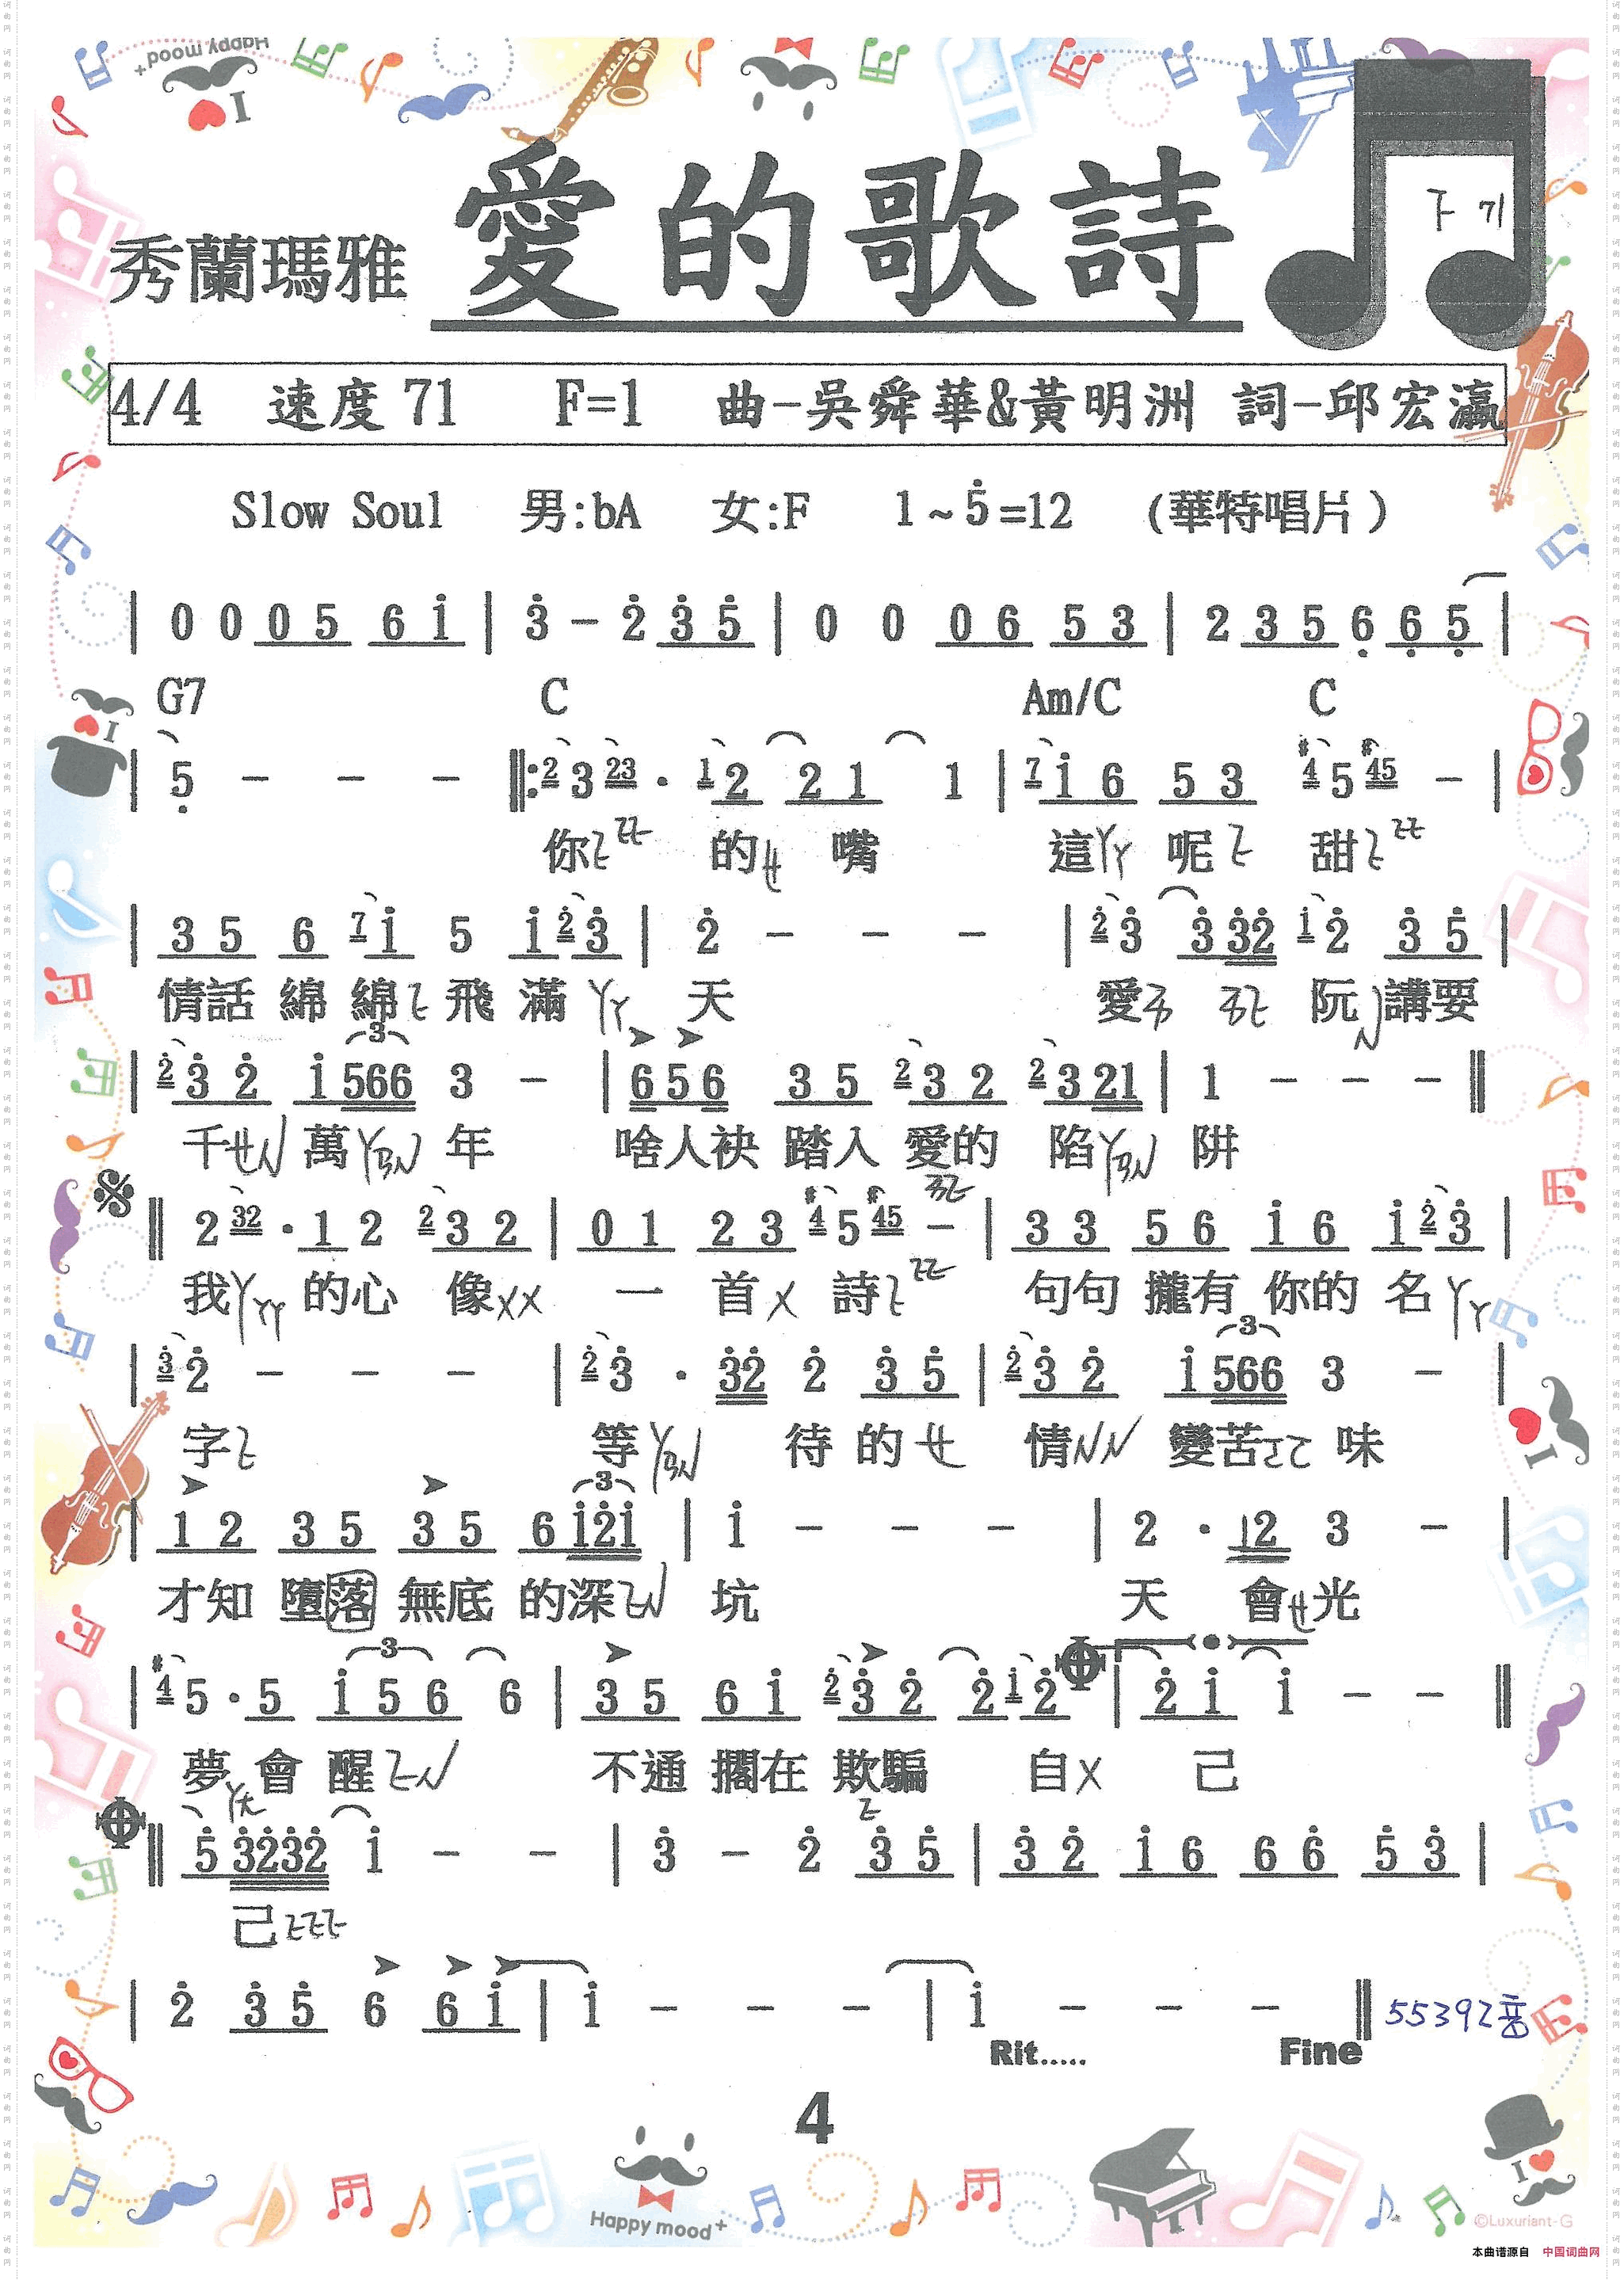 Happy mood+
I
愛的歌詩
秀蘭瑪雅
下 71
4/4 速度 71 F=1 曲-吳舜華&黃明洲 詞-邱宏瀛
Slow Soul 男:bA 女:F 1~5̇=12 (華特唱片)
| 0 0 0 5 6 1̇ | 3̇ - 2̇ 3̇ 5̇ | 0 0 0 6 5 3 | 2 3 5 6̣ 6̣ 5̣ |
G7 C Am/C C
| 5̣ - - - ‖: 2 3 23 · 1 2 2 1 1 | 7 1̇ 6 5 3 #4 5 #45 - |
你ㄜㄜㄜ 的ㄝ 嘴 這ㄚㄚ 呢ㄜ 甜ㄜㄜㄜ
| 3 5 6 7 1̇ 5 1̇ 2̇ 3̇ | 2̇ - - - | 2̇ 3̇ 3̇ 3̇2̇ 1̇ 2̇ 3̇ 5̇ |
情話 綿 綿 飛 滿 ㄚㄚ 天 愛 阮 講要
| 2̇ 3̇ 2̇ 1̇ 566 3 - | 6 5 6 3 5 2 3 2 2 3 21 | 1 - - - ‖
3
千 萬 年 啥人袂 踏入 愛的 陷 阱
‖ 2 32 · 1 2 2 3 2 | 0 1 2 3 #4 5 #45 - | 3 3 5 6 1̇ 6 1̇ 2̇ 3̇ |
我ㄚㄚㄚ 的心 像ㄨㄨ 一 首ㄨ 詩 句句 攏有 你的 名ㄚㄚ
| 3̇ 2̇ - - - | 2̇ 3̇ · 3̇2̇ 2̇ 3̇ 5̇ | 2̇ 3̇ 2̇ 1̇ 566 3 - |
3
字 等 待 的ㄝ 情 變苦 味
| 1 2 3 5 3 5 6 1̇2̇1̇ | 1̇ - - - | 2 · 12 3 - |
3
才知 墮落 無底 的深 坑 天 會ㄝ光
| #4 5 · 5 1̇ 5 6 6 | 3 5 6 1̇ 2̇ 3̇ 2̇ 2̇ 1̇ 2̇ | 2̇ 1̇ 1̇ - - ‖
3
夢 會 醒 不通 擱在 欺騙 自ㄨ 己
‖ 5̇ 3̇2̇3̇2̇ 1̇ - - | 3̇ - 2̇ 3̇ 5̇ | 3̇ 2̇ 1̇ 6 6 6̇ 5̇ 3̇ |
己
| 2̇ 3̇ 5̇ 6 6 1̇ | 1̇ - - - | 1̇ - - - ‖ 55392音
Rit..... Fine
4
Happy mood+
I
©Luxuriant-G
本曲谱源自 中国词曲网